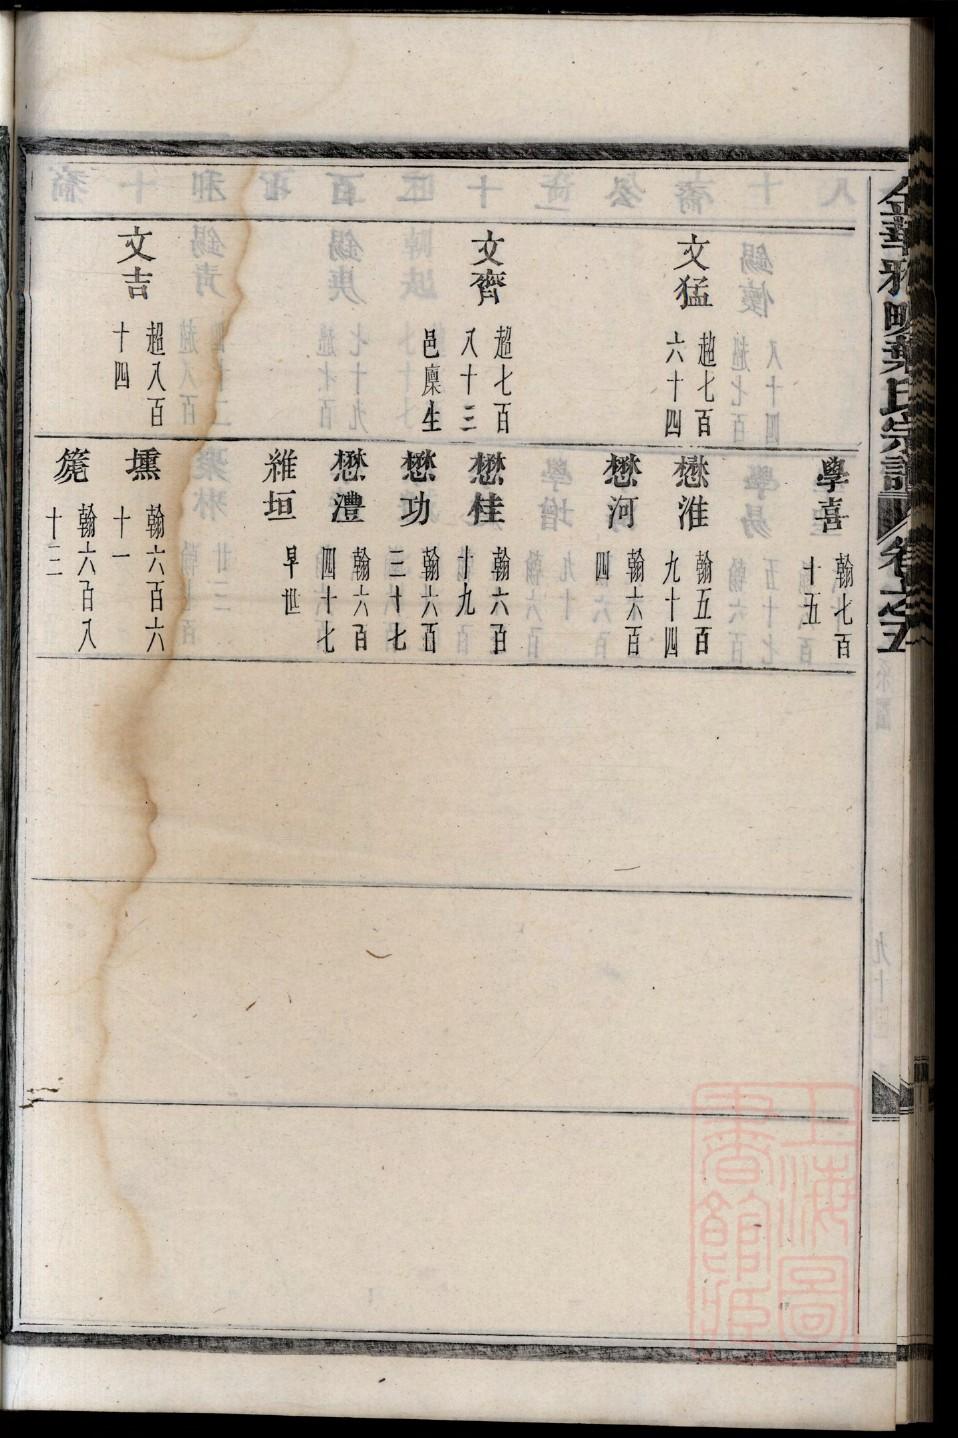 金華雅畈葉氏宗譜 卷之五
文猛 趙七百六十四
文齊 超七百八十三 邑廩生
文吉 超八百十四
學喜 翰七百十五
懋淮 翰五百九十四
懋河 翰六百四
懋桂 翰六百十九
懋功 翰六百三十七
懋澧 翰六百四十七
維垣 早世
壎 翰六百六十一
箎 翰六百八十三
上海圖書館藏